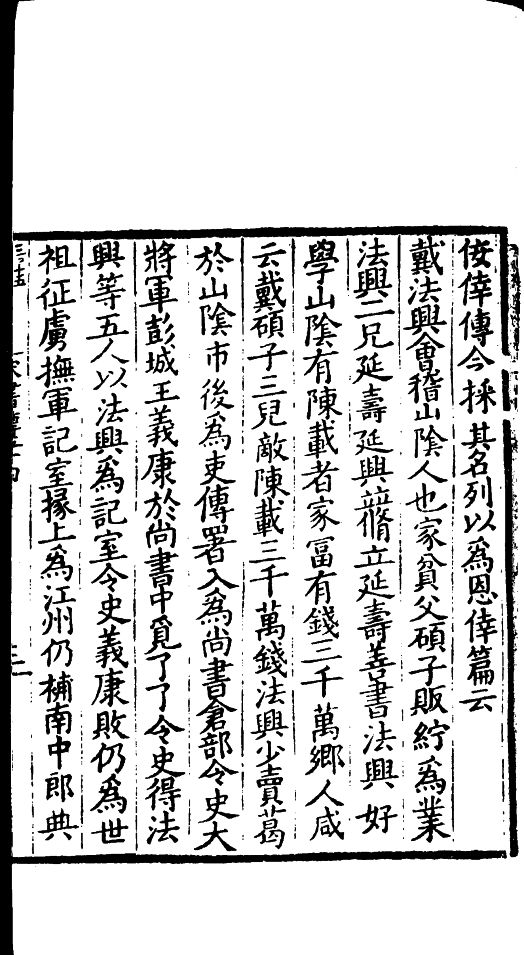 佞倖傳今採其名列以爲恩倖篇云
戴法興會稽山隂人也家貧父碩子販紵爲業
法興二兄延壽延興並脩立延壽善書法興好
學山隂有陳載者家冨有錢三千萬鄉人咸
云戴碩子三兒敵陳載三千萬錢法興少賣葛
於山隂市後爲吏傳署入爲尚書倉部令史大
將軍彭城王義康於尚書中覓了了令史得法
興等五人以法興爲記室令史義康敗仍爲世
祖征虜撫軍記室掾上爲江州仍補南中郎典